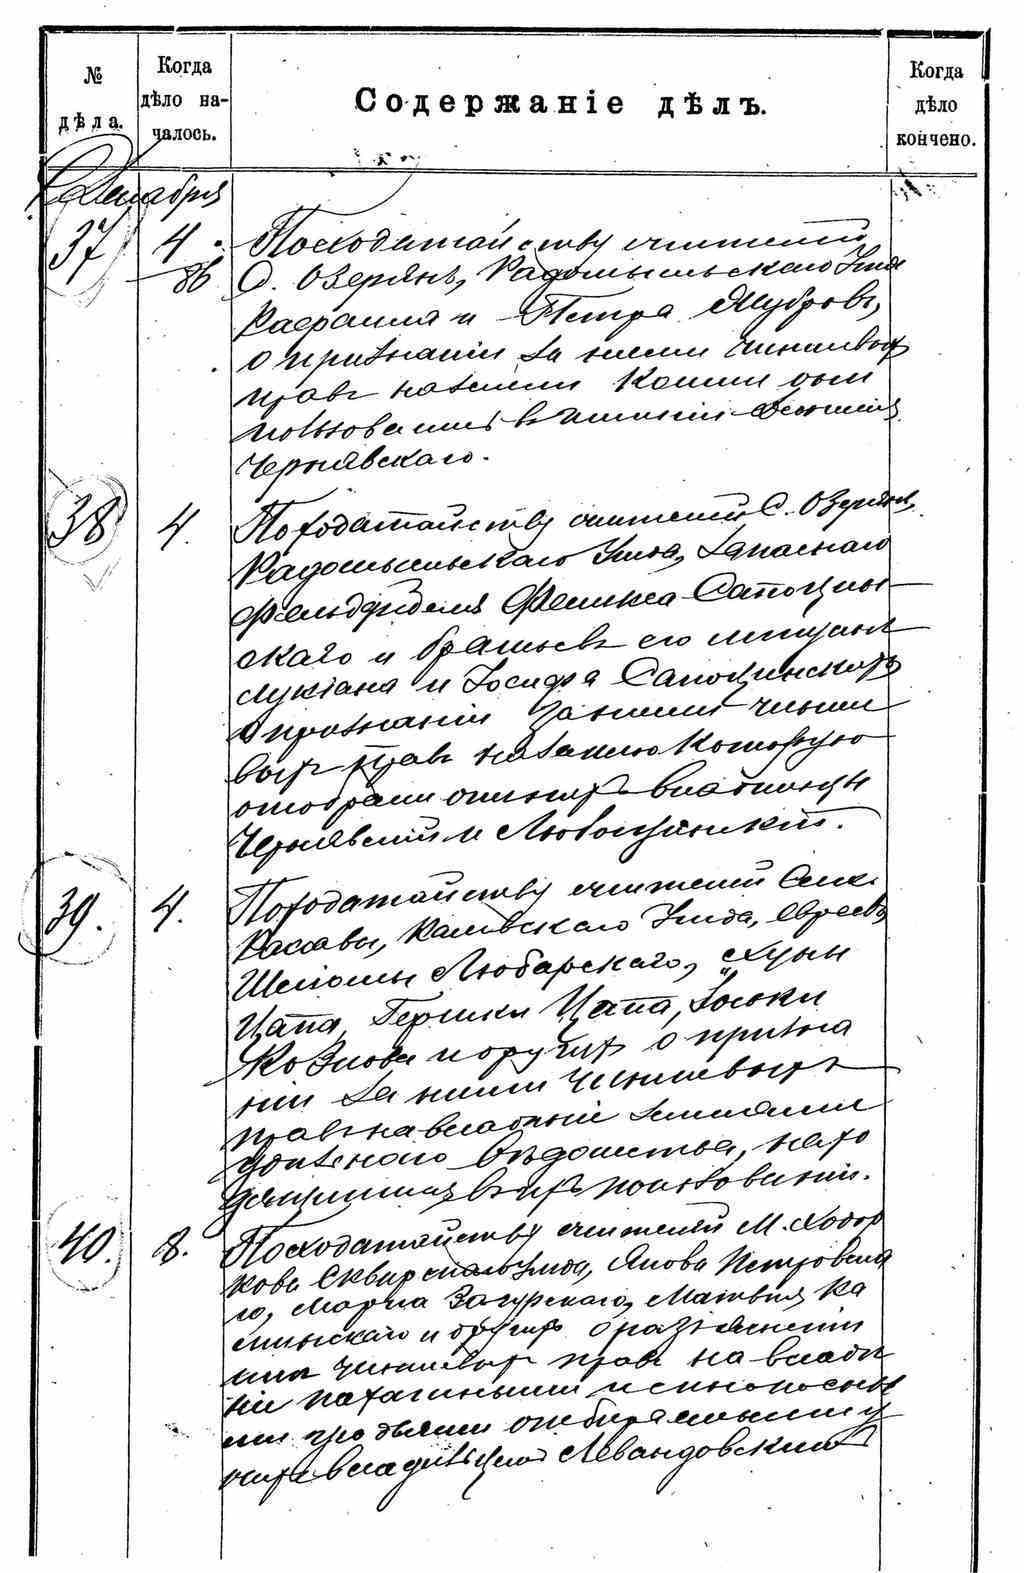 № дѣла.
Когда дѣло началось.
Содержаніе дѣлъ.
Когда дѣло кончено.
Декабря
37 4
86
По ходатайству жителей
с. Озерянъ, Радомысльскаго Уѣзда
Рафаила и Петра Жубровъ,
о признаніи за ними чиншевыхъ
правъ на земли коими они
пользовались въ имѣніи
Чернявскаго.
38 4.
По ходатайству жителей с. Озерянъ
Радомысльскаго Уѣзда, запаснаго
фельдфебеля Феликса Сапоцин-
скаго и братьевъ его мѣщанъ
Лукіана и Іосифа Сапоцинскихъ
о признаніи за ними чинше
выхъ правъ на землю которую
отобрали отъ нихъ владѣльцы
Чернявскій и
39. 4.
По ходатайству жителей Села
Расавы, Каневскаго Уѣзда, евреевъ
Шеломы Любарскаго,
Цапа, Гершки Цапа, Іоськи
Козлова и другихъ о призна
ніи за ними чиншевыхъ
правъ на владѣніе землями
удѣльнаго вѣдомства, нахо
дящимися въ ихъ пользованіи.
40. 8.
По ходатайству жителей М. Ходор
кова Сквирскаго Уѣзда, Якова Петровска
го, Марка Загурскаго, Матвѣя Ка
минскаго и другихъ о разъясненіи
имъ чиншевыхъ правъ на владѣ
ніе пахатными и сѣнокосны
ми угодьями отбираемыми у
нихъ владѣльцемъ Левандовскимъ